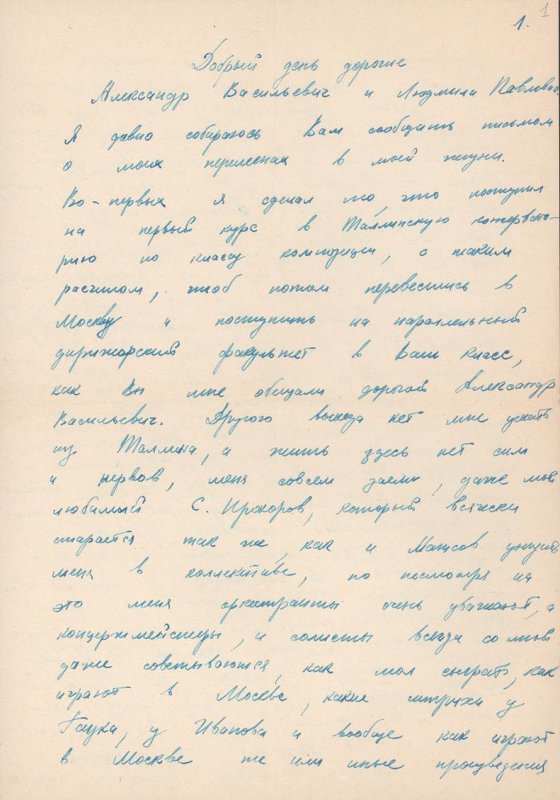 1.
1
Добрый день дорогие
Александр Васильевич и Людмила Павловна
Я давно собираюсь Вам сообщить письмом
о моих переменах в моей жизни.
Во-первых я сделал то, что поступил
на первый курс в Таллинскую консервато-
рию по классу композиции, с таким
расчетом, чтоб потом перевестись в
Москву и поступить на параллельный
дирижорский факультет в Ваш класс,
как Вы мне обещали дорогой Александр
Васильевич. Другого выхода нет мне уехать
из Таллина, а жить здесь нет сил
и нервов, меня совсем заели, даже мой
любимый С. Прохоров, который всячески
старается так же, как и Матсов унизить
меня в коллективе, но несмотря на
это меня оркестранты очень уважают, а
концертмейстеры, и солисты всегда со мной
даже советываются, как мол сыграть, как
играют в Москве, какие штрихи у
Гаука, у Иванова и вообще как играют
в Москве те или иные произведения